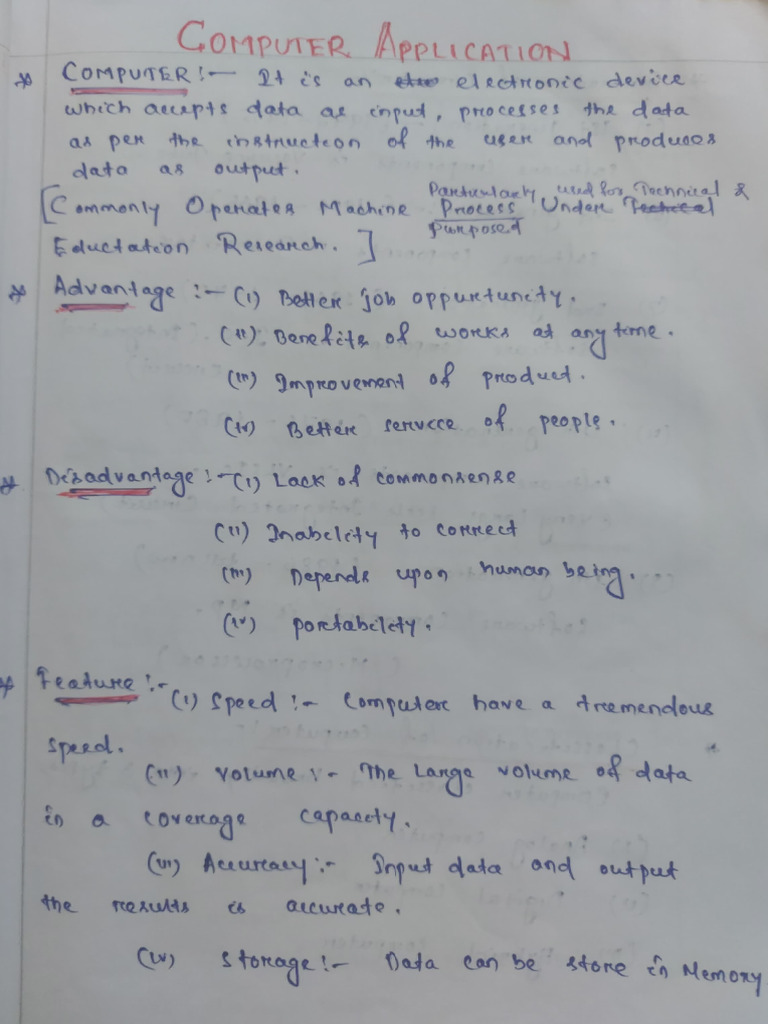 COMPUTER APPLICATION
* COMPUTER :- It is an electronic device
which accepts data as input, processes the data
as per the instruction of the user and produces
data as output.
[Commonly Operates Machine Particularly used for Technical &
Process Under Techical
Purposed
Eductation Research.]
* Advantage :- (i) Better job oppurtunity.
(ii) Benefits of works at any time.
(iii) Improvement of product.
(iv) Better service of people.
* Disadvantage :- (i) Lack of commonsense
(ii) Inability to correct
(iii) Depends upon human being.
(iv) portability.
* Feature :-
(i) Speed :- Computer have a tremendous
speed.
(ii) volume :- The Large volume of data
in a coverage capacity.
(iii) Accuracy :- Input data and output
the results is accurate.
(iv) Storage :- Data can be store in Memory